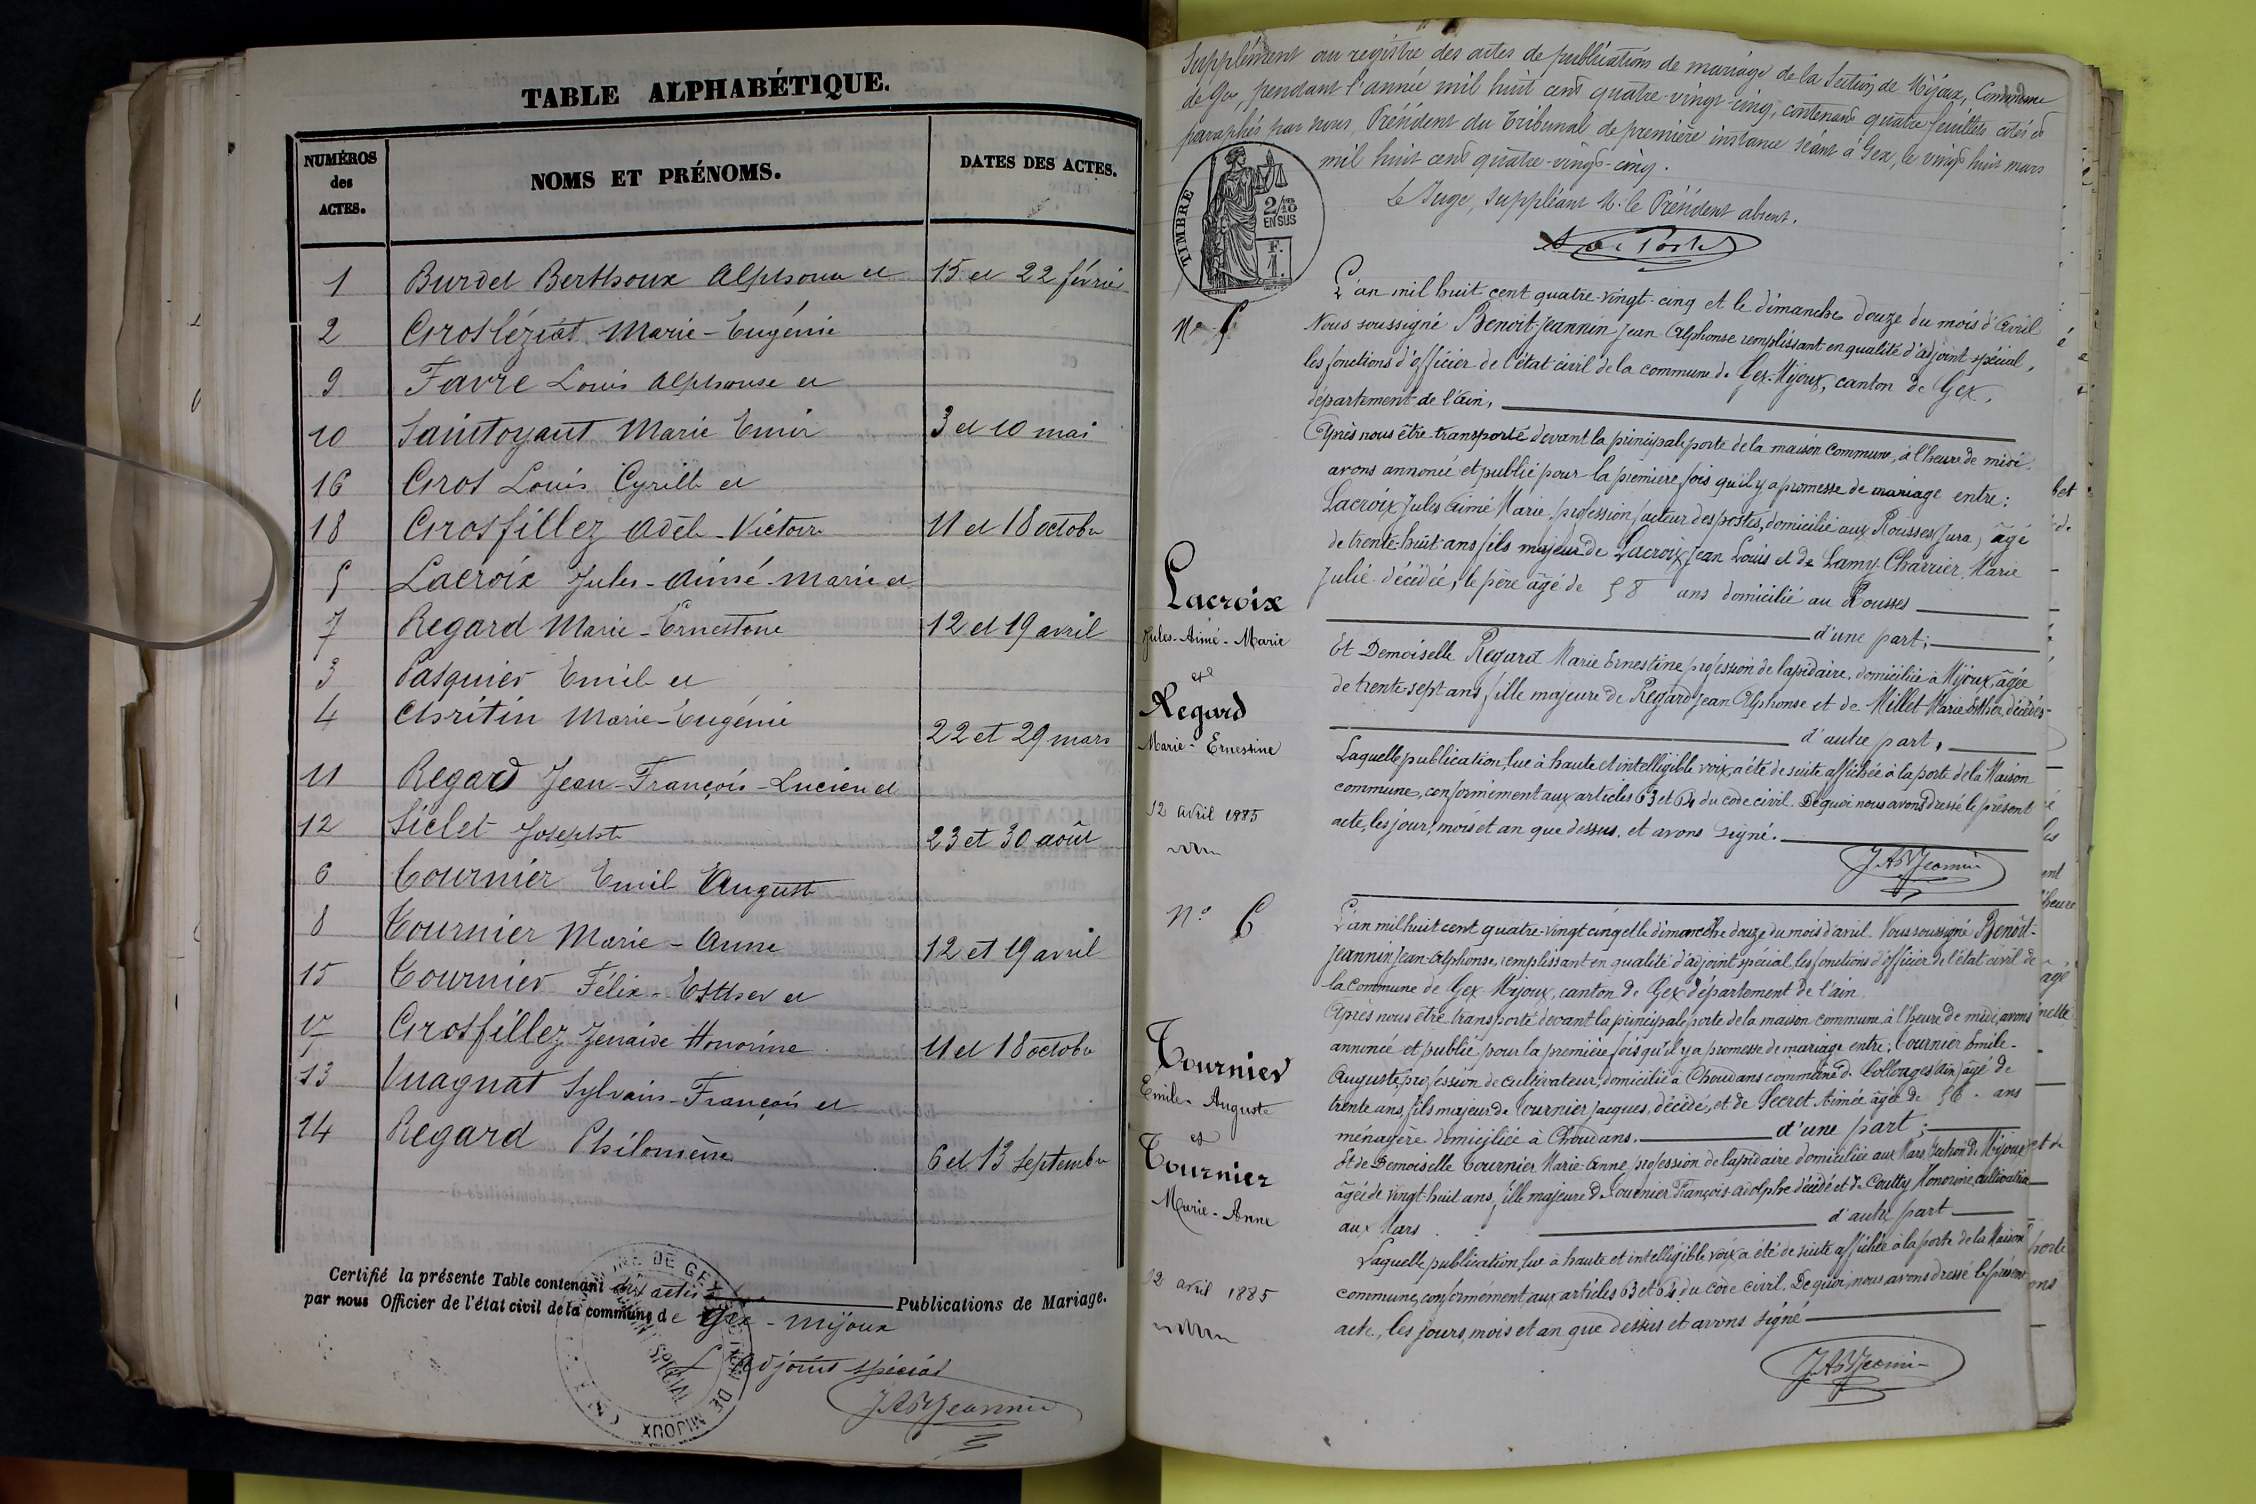 TABLE ALPHABÉTIQUE.
NUMÉROS
des
ACTES.
NOMS ET PRÉNOMS.
DATES DES ACTES.
1 Burdet Berthoux Alphonse et 15 et 22 février
2 Grosléziat Marie-Eugénie
9 Favre Louis Alphonse et
10 Saintoyant Marie 3 et 10 mai
16 Gros Louis Cyrille et
18 Grosfillez Adèle-Victoire 11 et 18 octobre
5 Lacroix Jules-Aimé-Marie et
7 Regard Marie-Ernestine 12 et 19 avril
3 Pasquier Emile et
4 Christin Marie-Eugénie
22 et 29 mars
11 Regard Jean-François-Lucien et
12 Siclet Josephte
23 et 30 août
6 Tournier Emile Auguste
8 Tournier Marie-Anne
12 et 19 avril
15 Tournier Félix-Esther et
17 Grosfillez Zenaïde Honorine
11 et 18 octobre
13 Vuagnat Sylvain-François et
14 Regard Philomène
6 et 13 septembre
Certifié la présente Table contenant actes Publications de Mariage.
par nous Officier de l'état civil de la commune de Gex-Mijoux
L'adjoint spécial
JABJeannin
Supplément au registre des actes de publications de mariage de la Section de Mijoux, Commune
de Gex, pendant l'année mil huit cent quatre-vingt-cinq, contenant quatre feuillets cotés et
paraphés par nous, Président du Tribunal de première instance séant à Gex, le vingt huit mars
mil huit cent quatre-vingt-cinq.
Le Juge, suppléant M. le Président absent.
TIMBRE
2/10
EN SUS
F.
1.
No 5
L'an mil huit cent quatre-vingt-cinq et le dimanche douze du mois d'Avril
Nous soussigné Benoit-Jeannin Jean Alphonse remplissant en qualité d'adjoint spécial,
les fonctions d'officier de l'état civil de la commune de Gex-Mijoux, canton de Gex,
département de l'Ain,
Après nous être transporté devant la principale porte de la maison commune, à l'heure de midi
avons annoncé et publié pour la première fois qu'il y a promesse de mariage entre:
Lacroix Jules Aimé Marie, profession facteur des postes, domicilié aux Rousses (Jura) âgé
de trente-huit ans fils majeur de Lacroix Jean Louis et de Lamy-Charrier Marie
Julie décédée, le père âgé de 58 ans domicilié au Rousses
d'une part;
Et Demoiselle Regard Marie Ernestine profession de lapidaire, domiciliée à Mijoux, âgée
de trente sept ans, fille majeure de Regard Jean Alphonse et de Millet Marie Esther, décédés
d'autre part,
Laquelle publication, lue à haute et intelligible voix, a été de suite affichée à la porte de la Maison
commune, conformément aux articles 63 et 64 du code civil. De quoi nous avons dressé le présent
acte, les jour, mois et an que dessus, et avons signé.
JABJeannin
Lacroix
Jules-Aimé-Marie
et
Regard
Marie-Ernestine
12 avril 1885
No 6
L'an mil huit cent quatre-vingt cinq et le dimanche douze du mois d'avril. Nous soussigné Benoit-
Jeannin Jean-Alphonse, remplissant en qualité d'adjoint spécial, les fonctions d'officier de l'état civil de
la Commune de Gex-Mijoux, canton de Gex département de l'ain.
Après nous être transporté devant la principale porte de la maison commune à l'heure de midi, avons
annoncé et publié pour la première fois qu'il y a promesse de mariage entre, Tournier Emile-
Auguste, profession de cultivateur, domicilié à Choudans commune de Collonges (Ain) âgé de
trente ans, fils majeur de Tournier Jacques, décédé, et de Secret Aimée âgée de 56 ans
ménagère domiciliée à Choudans. d'une part;
Et de Demoiselle Tournier Marie-Anne, profession de lapidaire domiciliée aux Mars, section de Mijoux
âgée de vingt-huit ans, fille majeure de Tournier François-Adolphe décédé et de Coutty Honorine, cultivatrice
aux Mars. d'autre part
Laquelle publication, lue à haute et intelligible voix a été de suite affichée à la porte de la Maison
commune, conformément aux articles 63 et 64 du code civil. De quoi, nous avons dressé le présent
acte, les jours, mois et an que dessus et avons signé
JABJeannin
Tournier
Emile-Auguste
et
Tournier
Marie-Anne
12 avril 1885